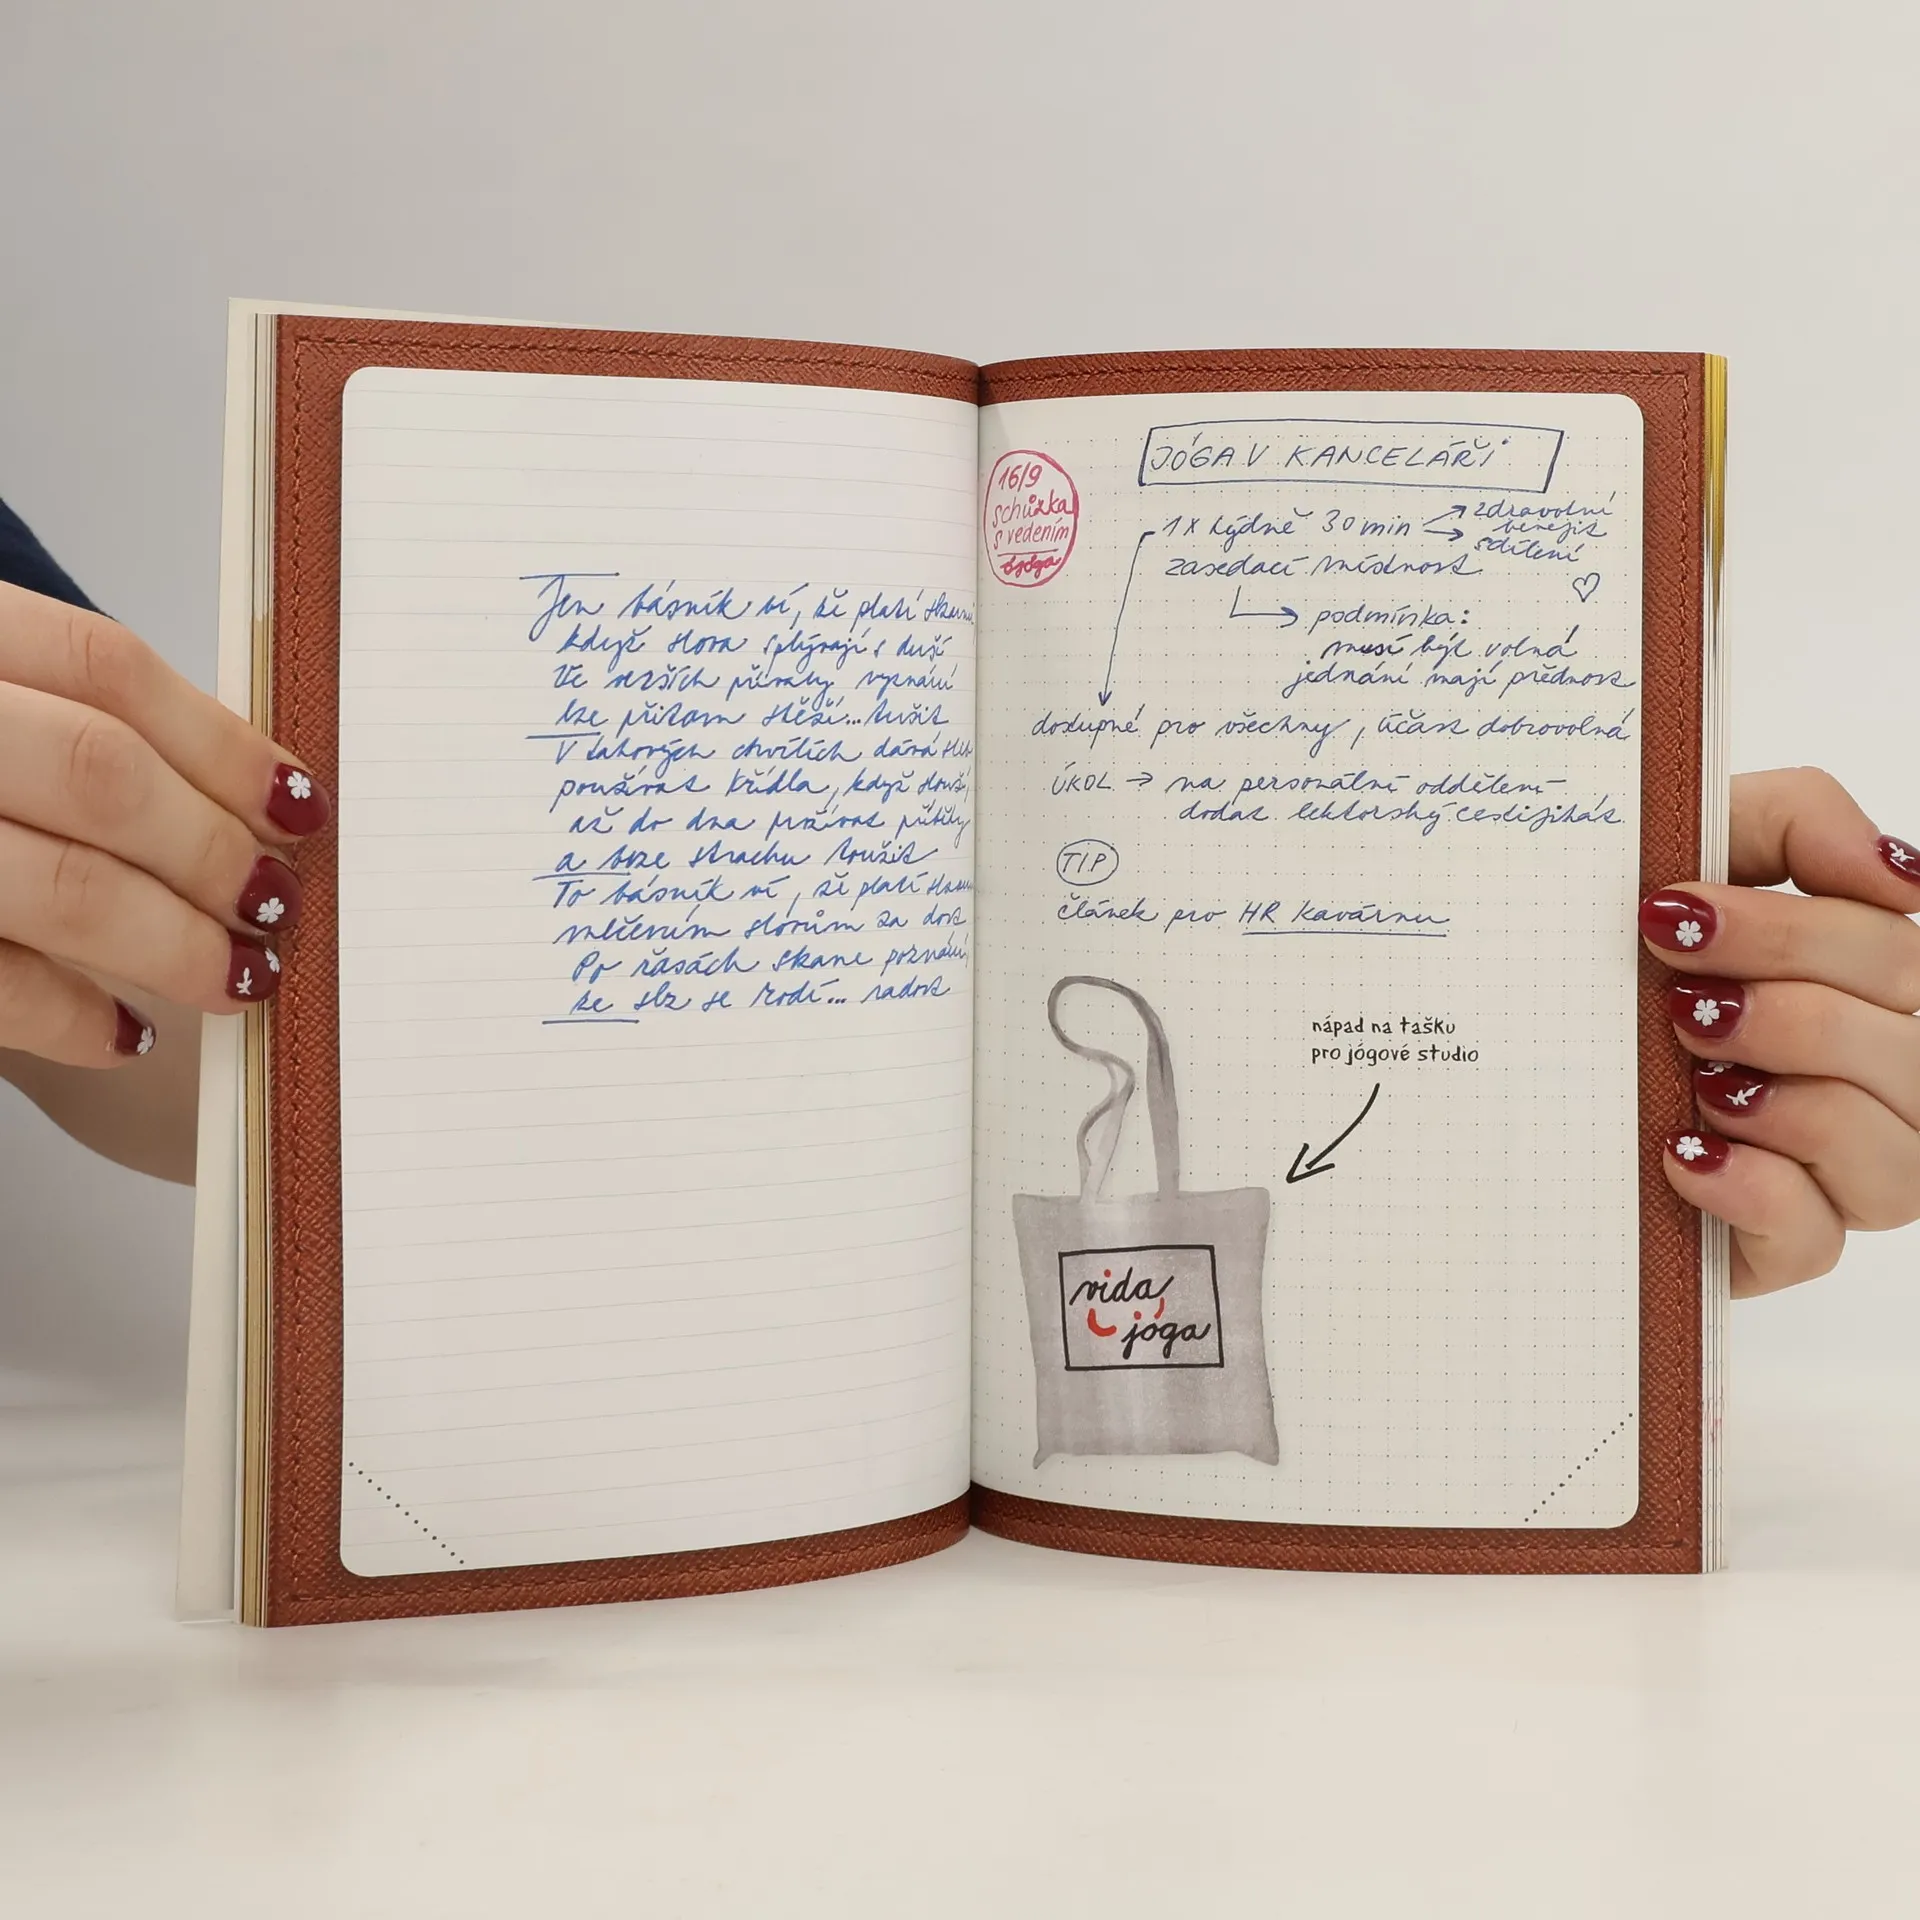 Jen básník ví, že platí
když slova splývají s duší
Ve verších přívaly vyznání
lze přitom stěží... tušit
V takových chvílích dává
používat křídla, když
až do dna prožívat příběhy
a beze strachu toužit
To básník ví, že platí
mlčením slovům za dost
Po řasách skane poznání,
že slz se rodí... radost
JÓGA V KANCELÁŘI
16/9
schůzka
s vedením
jóga
1x týdně 30 min
zdravotní
benefit
sdílení
zasedací místnost
podmínka:
musí být volná
jednání mají přednost
dostupné pro všechny, účast dobrovolná
ÚKOL → na personální oddělení
dodat lektorský certifikát
TIP
článek pro HR kavárnu
nápad na tašku
pro jógové studio
vida
jóga